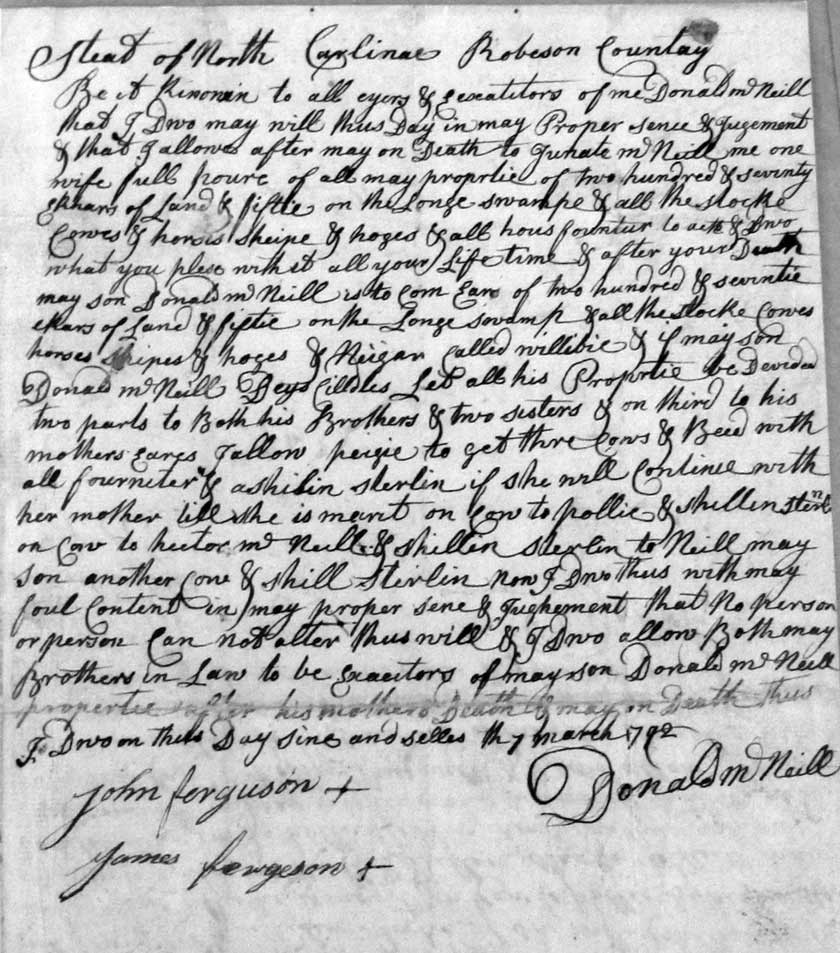 Steat of North Carlinae Robeson Countay
Be it Kinonin to all eyers & Exexatitors of me Donald mcNeill
that I Dwo may will thus Day in may Proper sence & Jugement
& that I allowe after may on Death to Junate mc Neill me one
wife full poure of all may proprtie of two hundred & seventy
Ekkars of Land & fiftie on the Longe swampe & all the stocke
Cowes & horsis sheipe & hoges & all hous fountur to acte & Dwo
what you plese withit all your Life time & after your Death
may son Donald mcNeill is to Com Ears of two hundred & seventie
ekars of Land & fiftie on the Longe swamp & all the stocke Cowes
horses shipes & hoges & Neigar Called willibie & if may son
Donald mcNeill Deys Cilldles Let all his Proprtie be Devided
two parts to Both his Brothers & two sisters & on third to his
mothers eares I allow peigie to get thre Cows & Beed with
all fourniter & a shilin sterlin if she will Continue with
her mother till she is marit on Cow to pollie & shillen sterln
on Cow to hector mc Neill & shillin sterlin to Neill may
son another Cow & shill sterlin now I Dwo thus with may
foul Content in may proper sene & Jughement that No person
or person Can not alter thus will & I Dwo allow Both may
Brothers in Law to be Exacitors of may son Donald mc Neill
propertie after his mothers Death & may on Death thus
I Dwo on thus Day sine and selles th 7 march 1792
Donald mc Neill
john ferguson +
james fergeson +